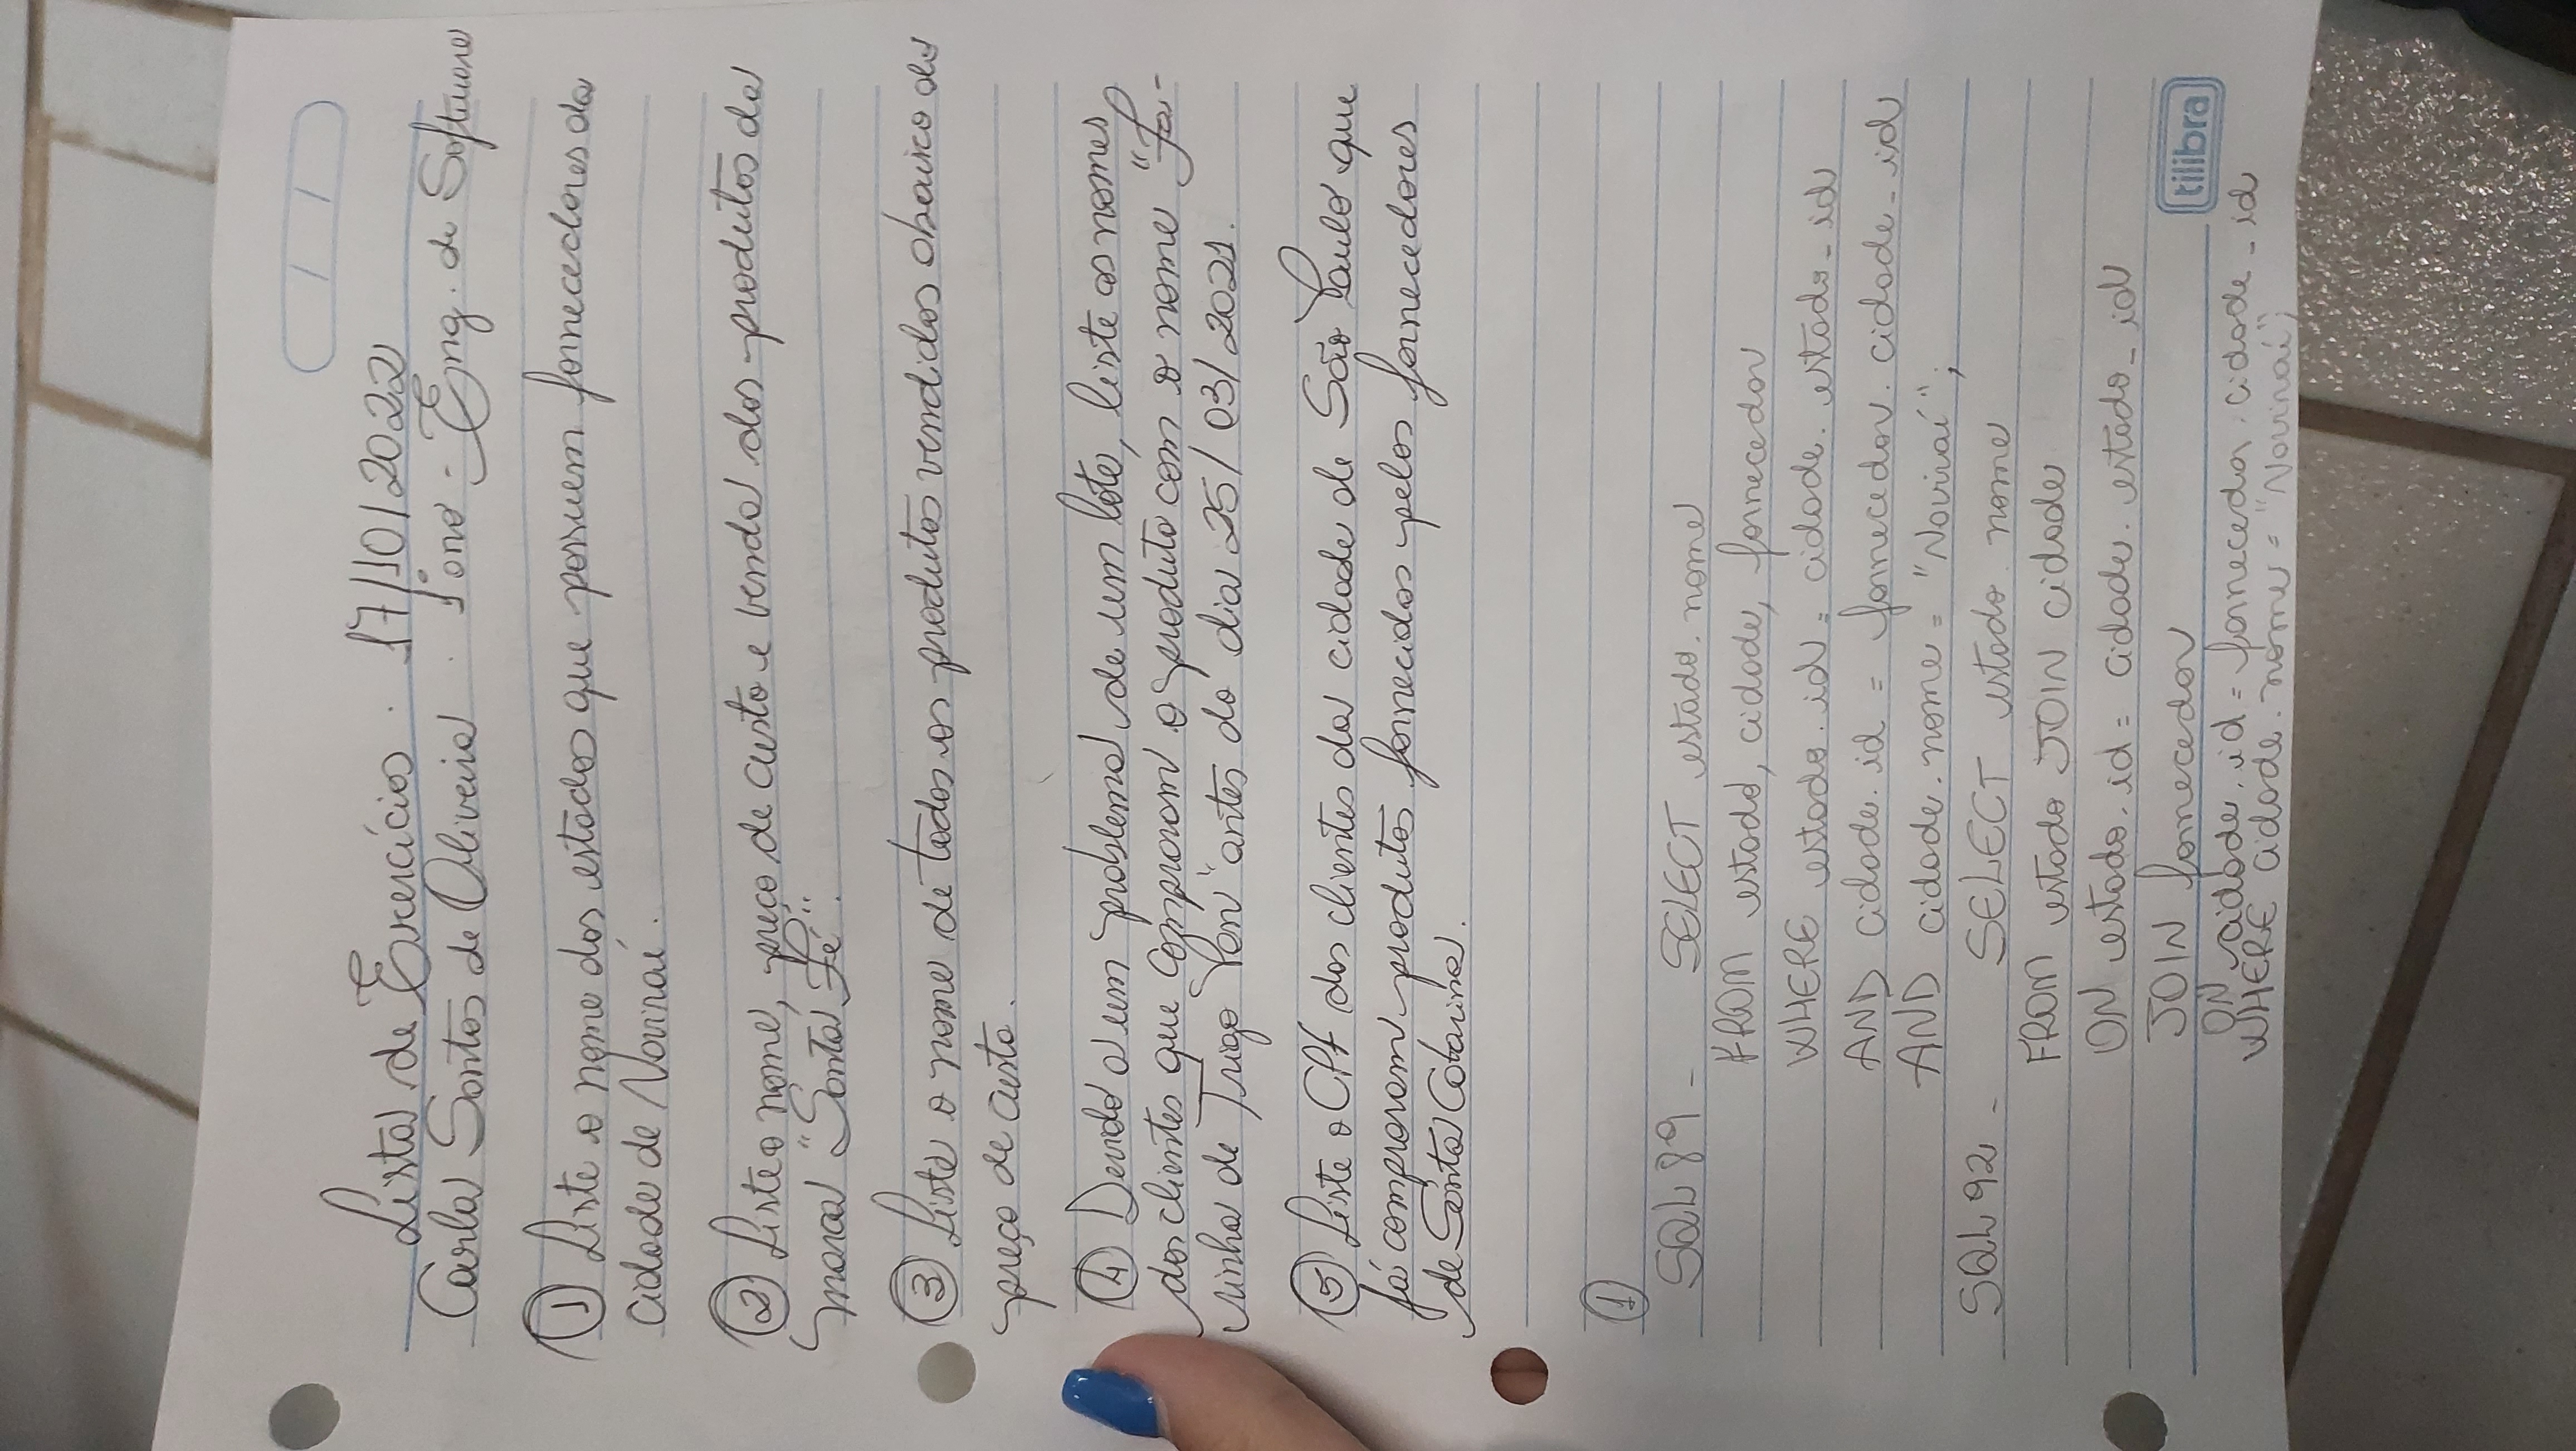 Lista de Exercícios . 17/10/2022
Carla Santos de Oliveira . 1º ano - Eng. de Software
① Liste o nome dos estados que possuem fornecedores da
cidade de Naviraí.
② Liste o nome, preço de custo e venda dos produtos da
marca "Santa Fé".
③ Liste o nome de todos os produtos vendidos abaixo do
preço de custo.
④ Devido a um problema de um lote, liste os nomes
dos clientes que compraram o produto com o nome "Fa-
rinha de Trigo Pan" antes do dia 25/03/2021.
⑤ Liste o CPF dos clientes da cidade de São Paulo que
já compraram produtos fornecidos pelos fornecedores
de Santa Catarina.
①
SQL 89 - SELECT estado.nome
FROM estado, cidade, fornecedor
WHERE estado.id = cidade.estado_id
AND cidade.id = fornecedor.cidade_id
AND cidade.nome = "Naviraí";
SQL 92 - SELECT estado.nome
FROM estado JOIN cidade
ON estado.id = cidade.estado_id
JOIN fornecedor
tilibra
ON cidade.id = fornecedor.cidade_id
WHERE cidade.nome = "Naviraí";